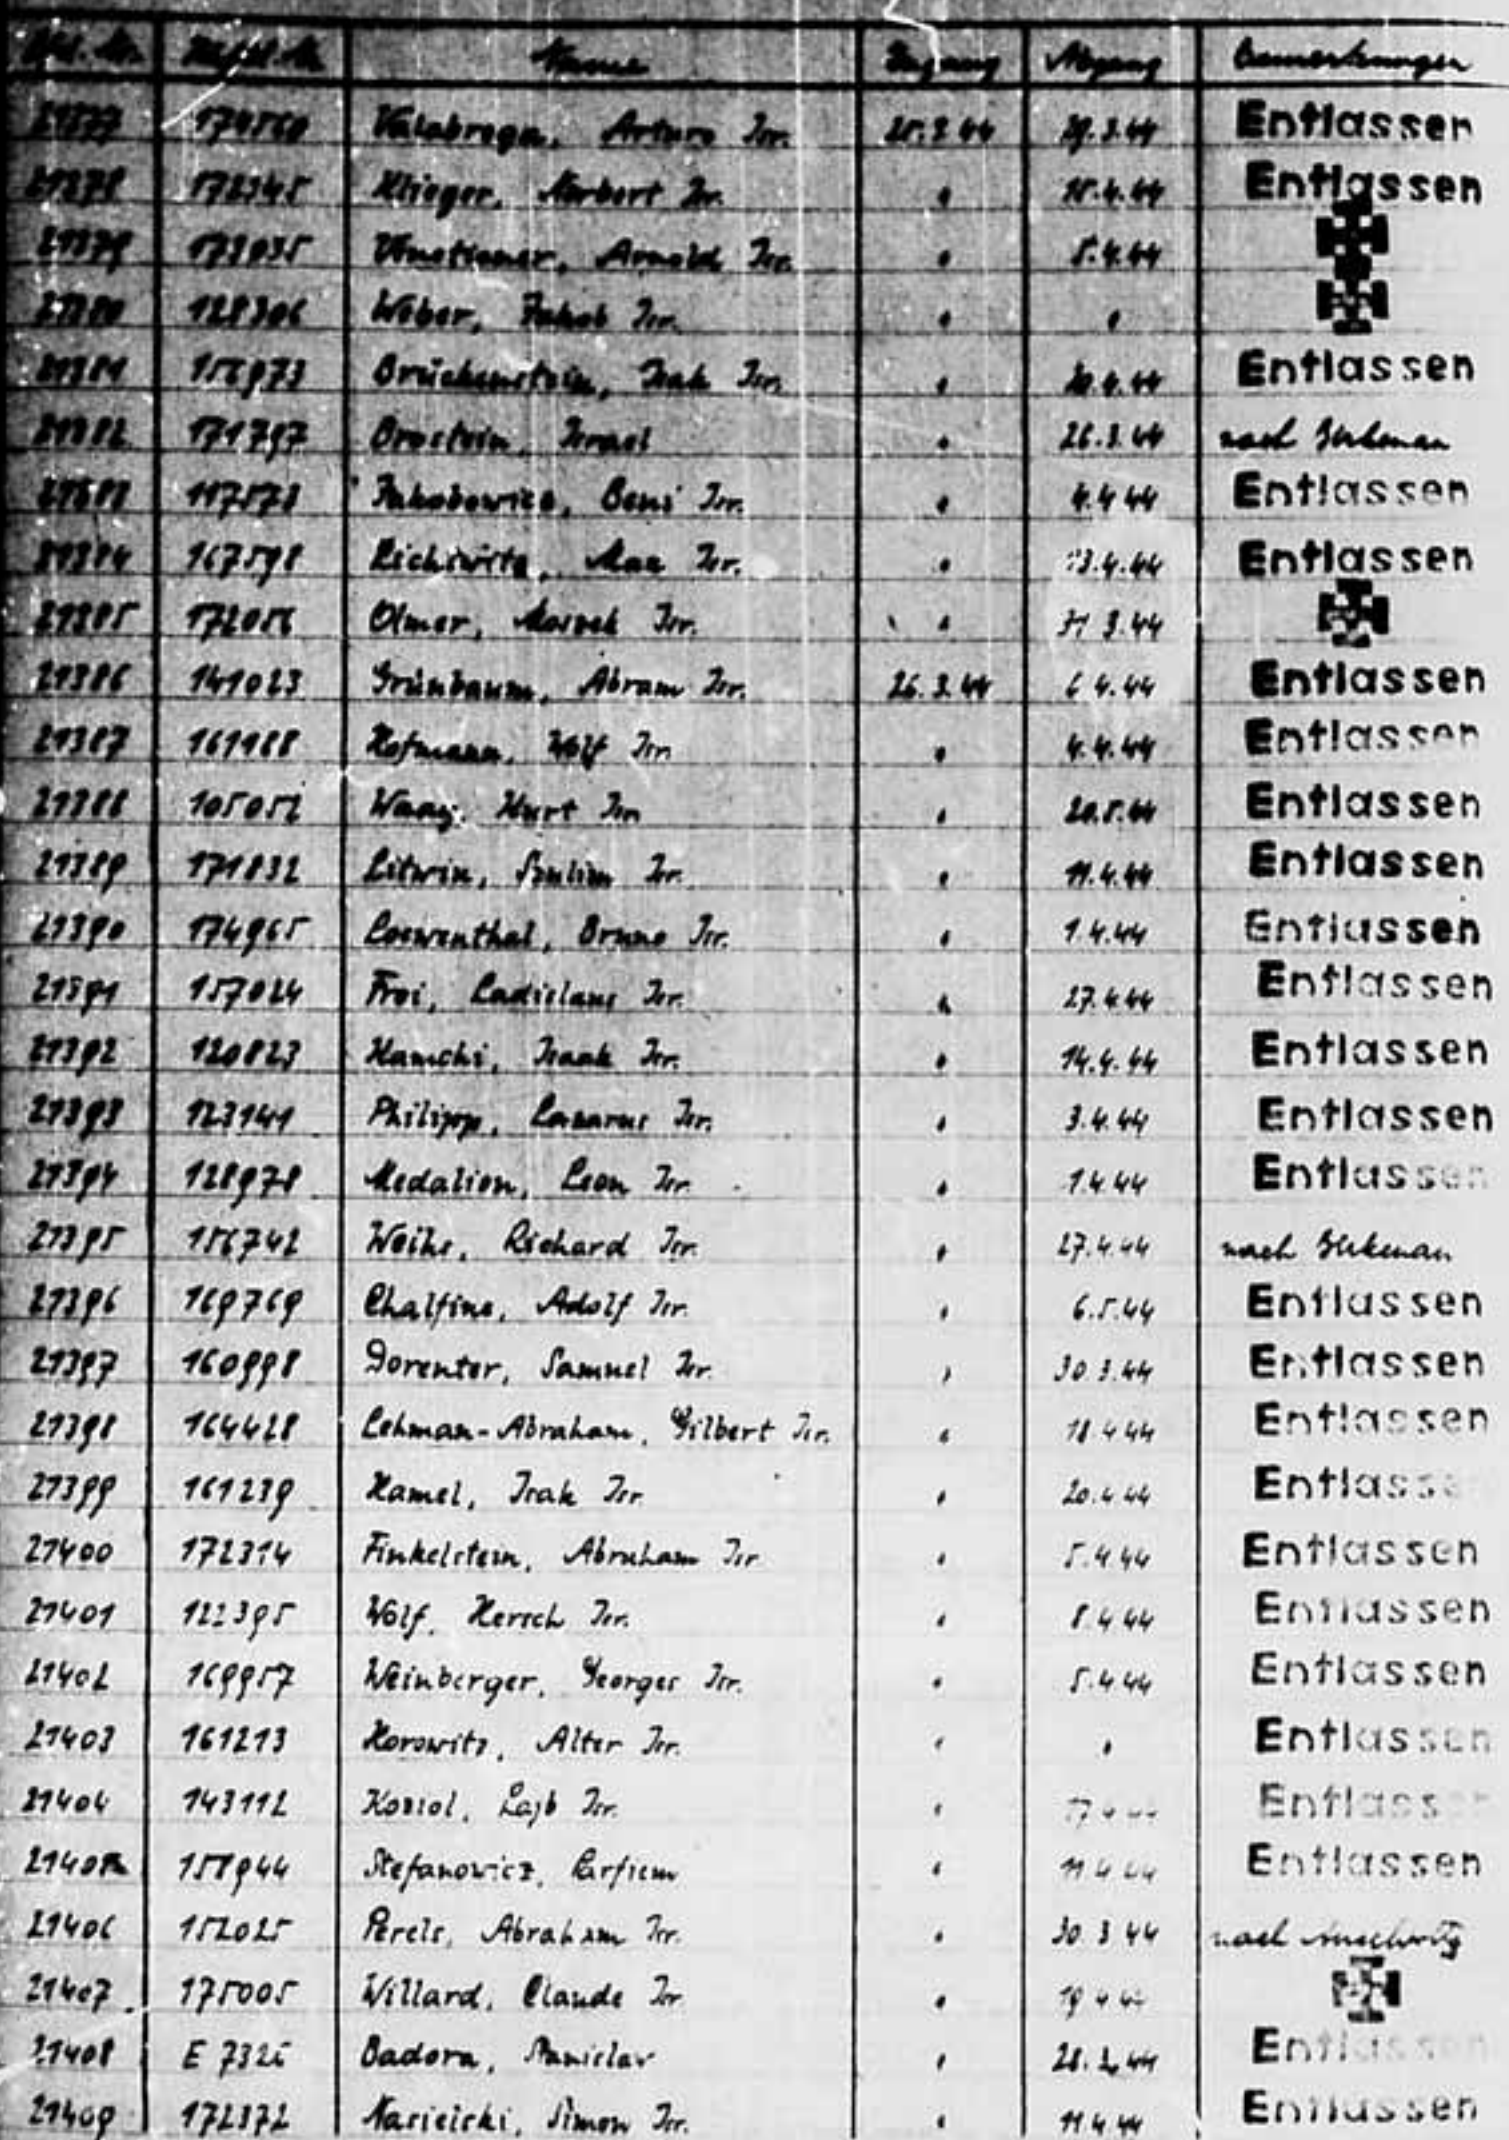 Lfd. Nr. Häftl. Nr. Name Zugang Abgang Bemerkungen
21377 174560 Valabrega, Arturo Isr. 25.3.44 29.3.44 Entlassen
21378 172345 Klieger, Norbert Isr. " 15.4.44 Entlassen
21379 173035 Arnold Isr. " 5.4.44
21380 128306 Weber, Jakob Isr. " "
21381 156973 Brückenstein, Isak Isr. " 20.4.44 Entlassen
21382 171797 Israel " 26.3.44 nach Birkenau
21383 117573 Jakobowicz, Beni Isr. " 4.4.44 Entlassen
21384 167598 Max Isr. " 13.4.44 Entlassen
21385 172056 Olmer, Moszek Isr. " 31.3.44
21386 141023 Grünbaum, Abram Isr. 26.3.44 6.4.44 Entlassen
21387 161188 Hofmann, Wolf Isr. " 4.4.44 Entlassen
21388 105052 Waag, Kurt Isr. " 20.5.44 Entlassen
21389 171832 Litwin, Szulim Isr. " 11.4.44 Entlassen
21390 174965 Loewenthal, Bruno Isr. " 1.4.44 Entlassen
21391 157024 Froi, Ladislaus Isr. " 27.4.44 Entlassen
21392 120823 Hamchi, Isaak Isr. " 14.4.44 Entlassen
21393 123141 Philipp, Lazarus Isr. " 3.4.44 Entlassen
21394 128978 Medalion, Leon Isr. " 1.4.44 Entlassen
21395 156742 Weihs, Richard Isr. " 27.4.44 nach Birkenau
21396 169769 Chalfine, Adolf Isr. " 6.5.44 Entlassen
21397 160998 Dorenter, Samuel Isr. " 30.3.44 Entlassen
21398 164428 Lehman-Abraham, Gilbert Isr. " 18.4.44 Entlassen
21399 161239 Hamel, Isak Isr. " 20.4.44 Entlassen
21400 172314 Finkelstein, Abraham Isr. " 5.4.44 Entlassen
21401 122395 Wolf, Hersch Isr. " 8.4.44 Entlassen
21402 169957 Weinberger, Georges Isr. " 5.4.44 Entlassen
21403 161213 Horowitz, Alter Isr. " " Entlassen
21404 143112 Koziol, Lajb Isr. " Entlassen
21405 158944 Stefanowicz, Parfiem " 11.4.44 Entlassen
21406 152025 Perels, Abraham Isr. " 30.3.44 nach Auschwitz
21407 175005 Willard, Claude Isr. " 19.4.44
21408 Badora, Stanislav " 28.3.44 Entlassen
21409 172372 Nasielski, Simon Isr. " 11.4.44 Entlassen